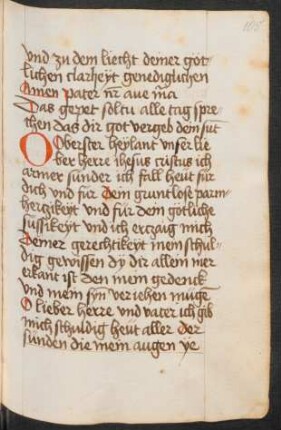 und zu dem liecht deiner göt-
lichen clarheyt genediglichen
Amen pater nr aue m͂a
Das gepet soltu alle tag spre-
chen das dir got vergeb dein sut
O Oberster heylant vnser lie
ber herre ihesus cristus ich
armer sunder ich fall heüt für
dich vnd für dein gruntlose parm-
herczikeyt vnd für dein götliche
süssikeyt vnd ich erczaig mich
Deiner gerechtikeyt mein schul-
dig gewissen dy dir allein mer
erkant ist den mein gedenck
vnd mein syn veriehen müge
O lieber herre vnd vater ich gib
mich schuldig heüt aller der
sunden die mein augen ye